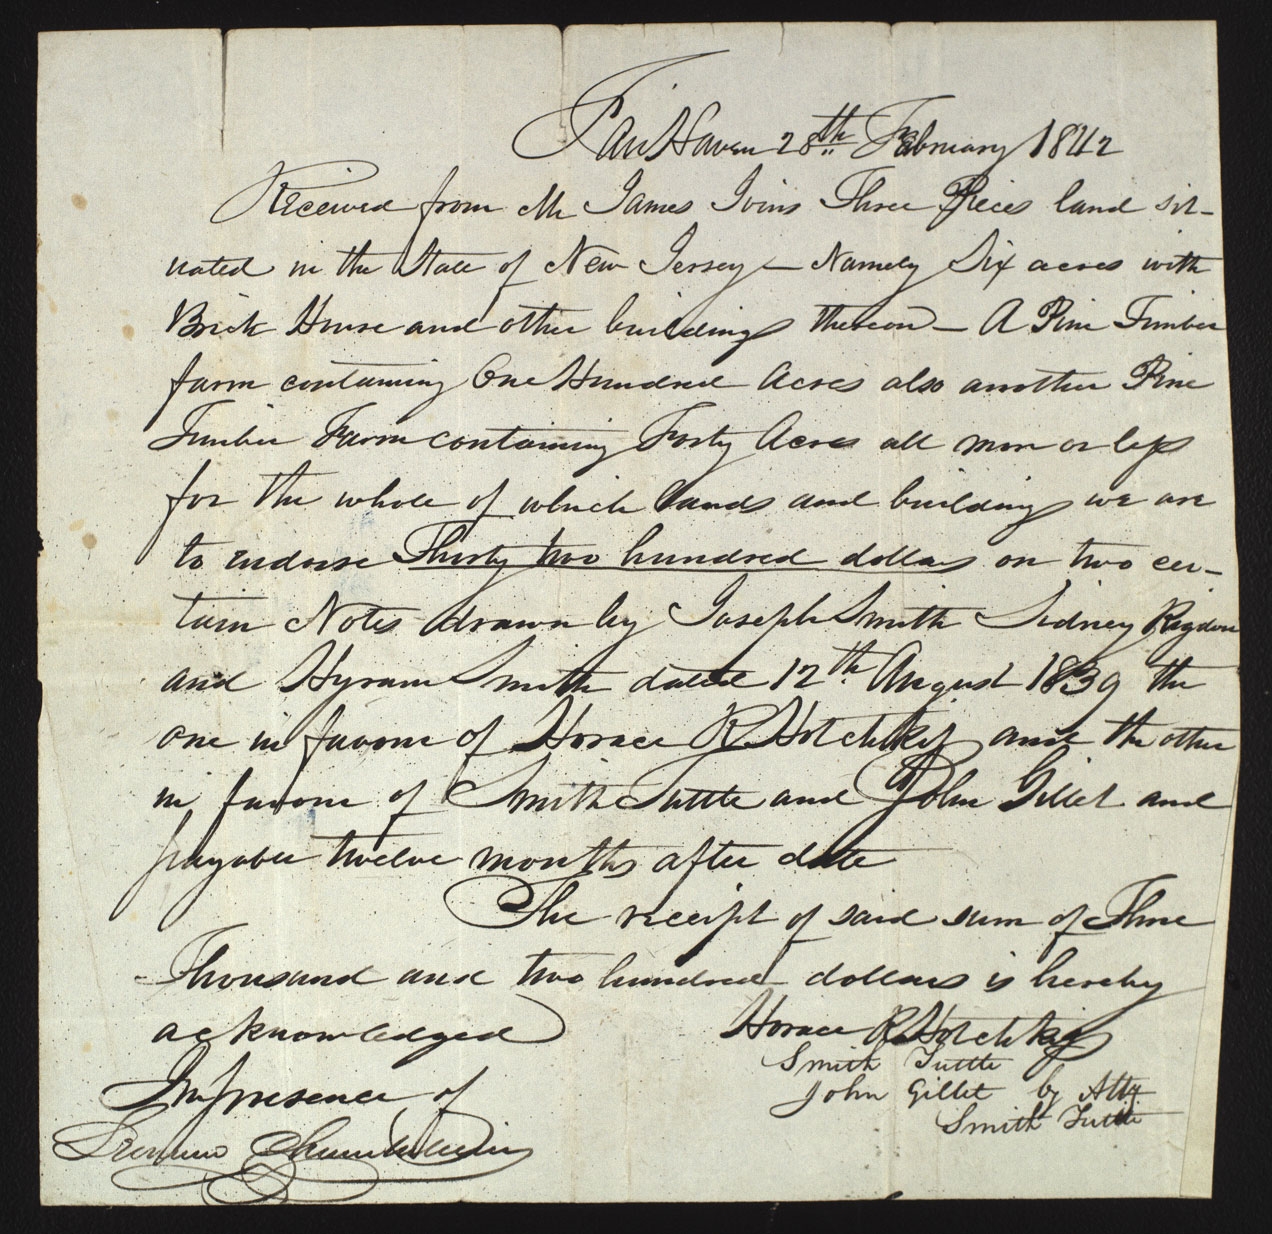 Fair Haven 28th February 1842
Received from Mr James Ivins Three Pieces land sit-
uated in the State of New Jersey – Namely Six acres with
Brick House and other buildings thereon – A Pine Timber
farm containing One Hundred Acres also another Pine
Timber Farm containing Forty Acres all more or less
for the whole of which lands and buildings we are
to endorse Thirty two hundred dollars on two cer-
tain Notes drawn by Joseph Smith Sidney Rigdon
and Hyram Smith dated 12th August 1839 the
one in favour of Horace R Hotchkiss and the other
in favour of Smith Tuttle and John Gillet and
payable twelve months after date
The receipt of said sum of Three
Thousand and two hundred dollars is hereby
acknowledged Horace R. Hotchkiss
Smith Tuttle
In presence of John Gillet by Atty
Smith Tuttle
Chamberlain